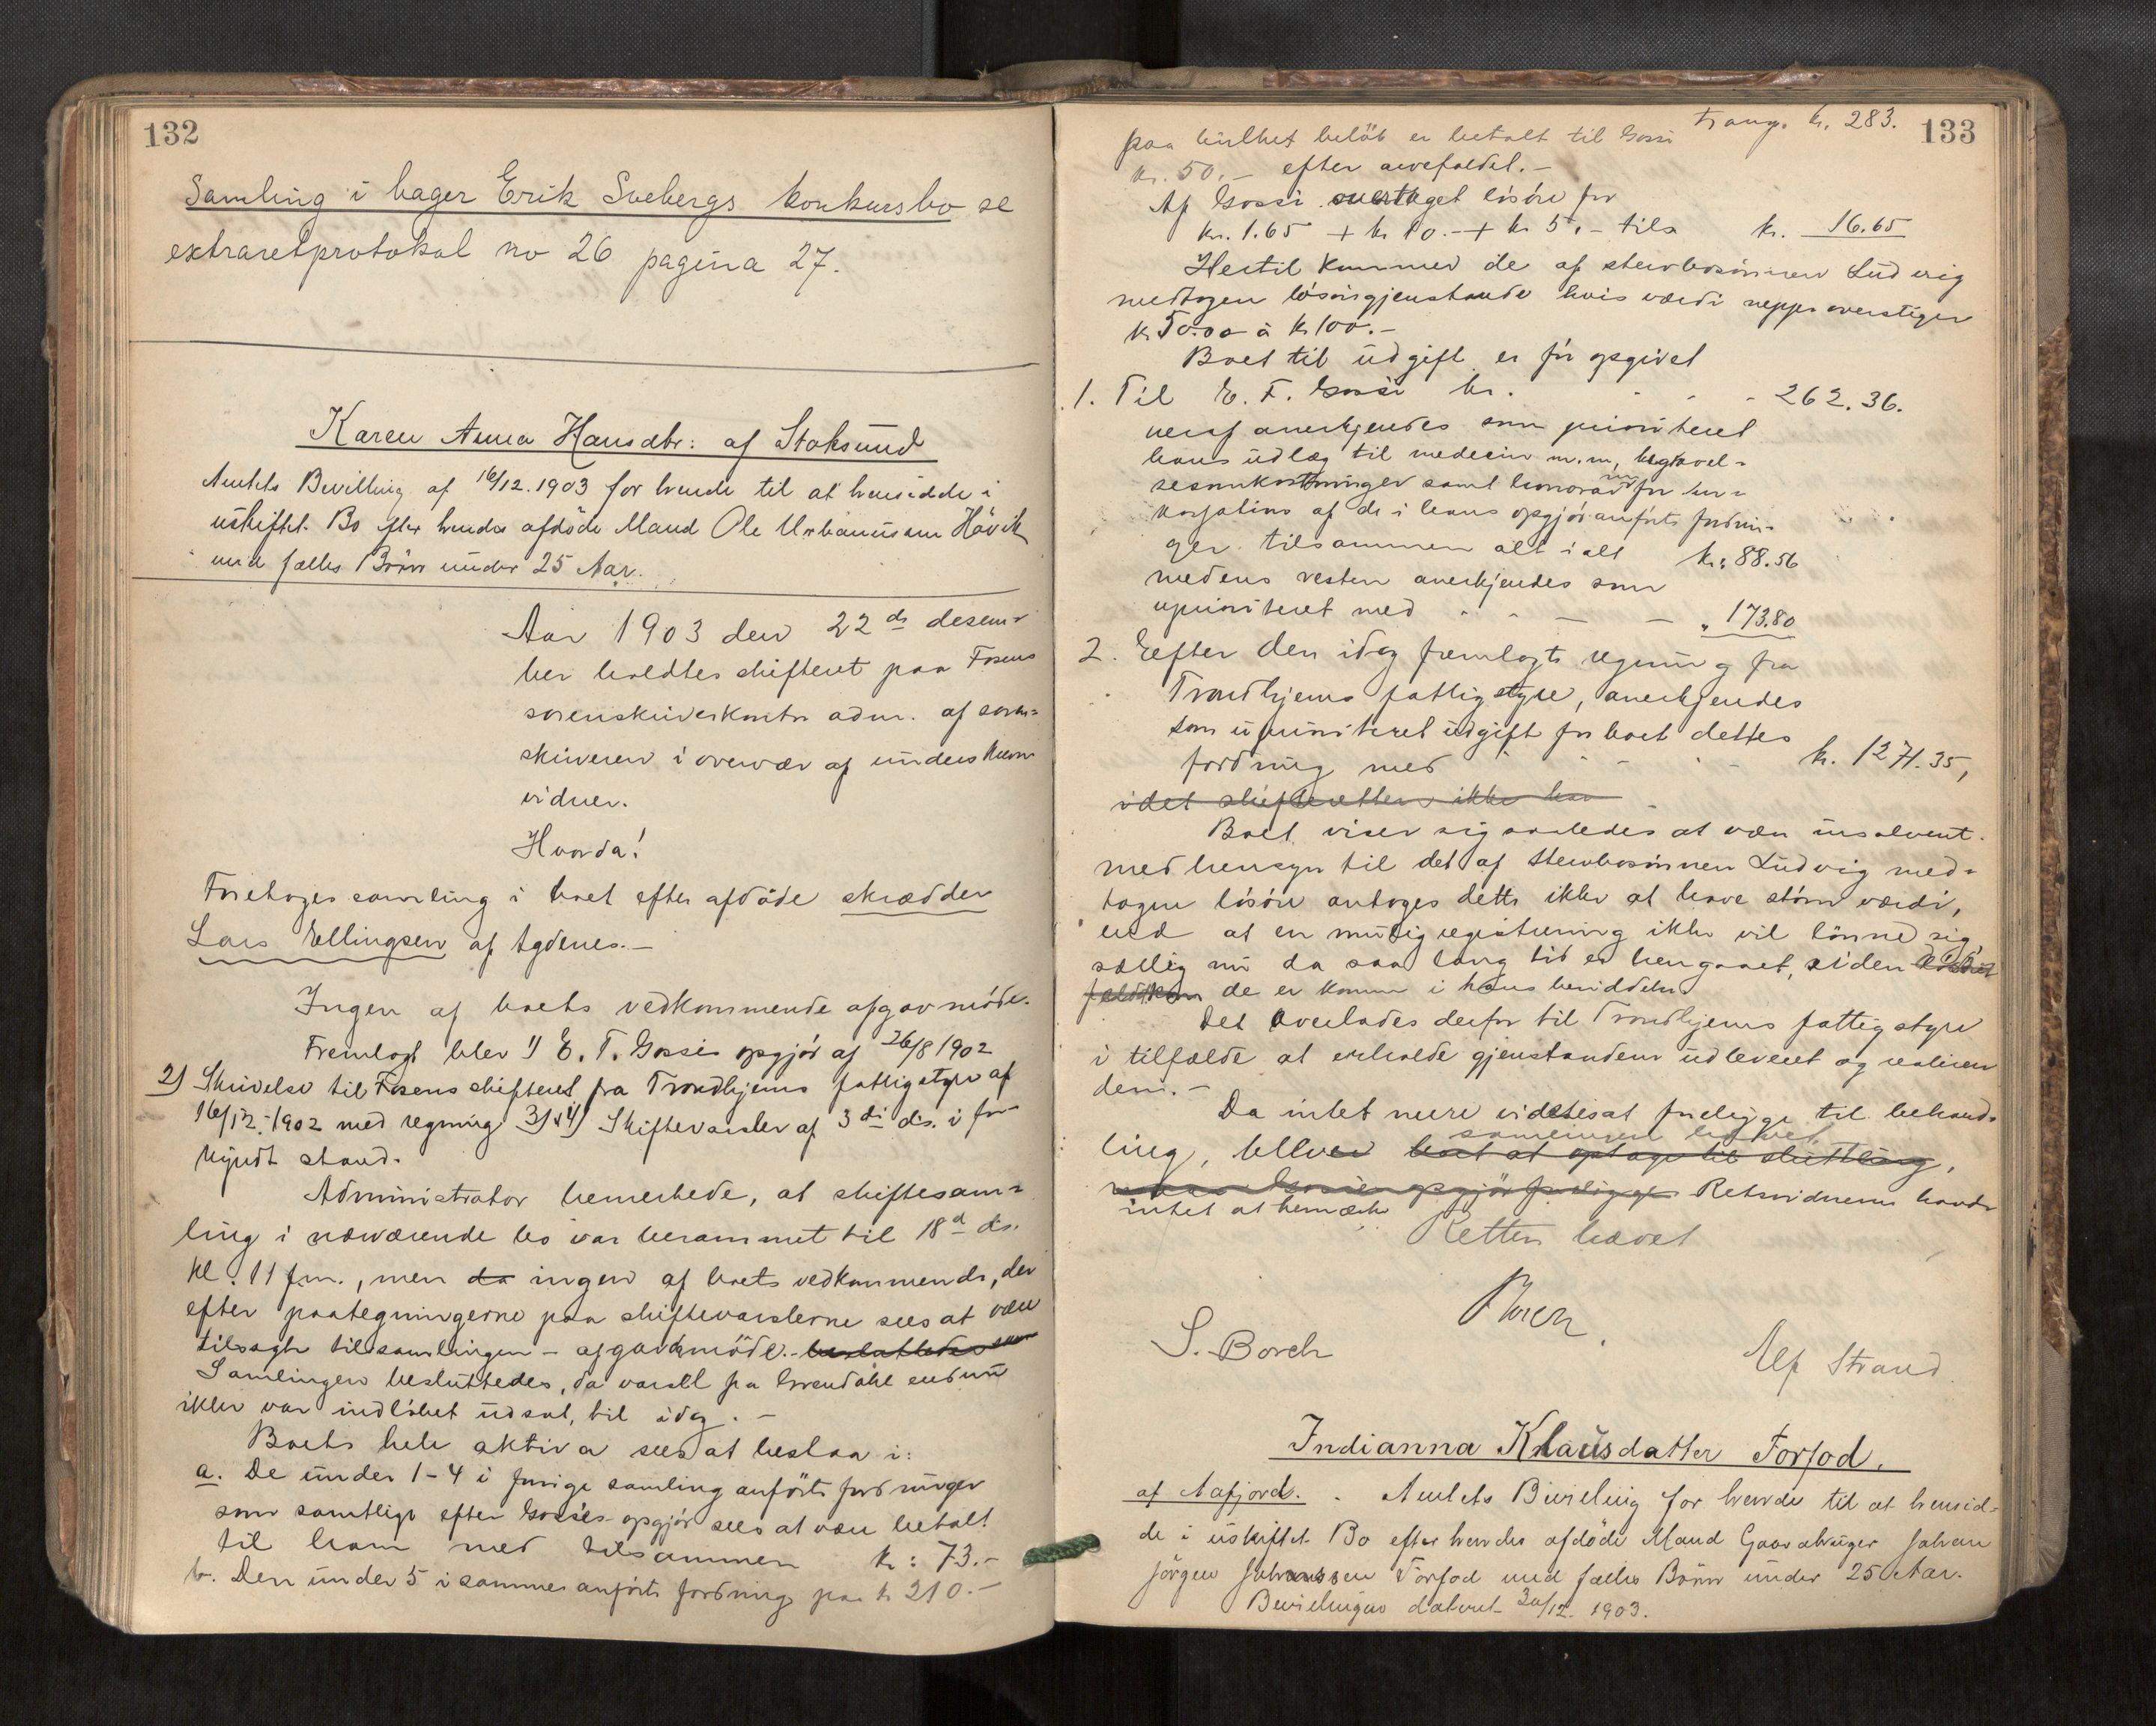 132
Samling i bager Erik Svebergs konkursbo se
extraretprotokol no 26 pagina 27.
Karen Anna Hansdtr: af Stoksund
Amtets Bevilling af 16/12.1903 for hende til at hensidde i
uskiftet Bo efter hendes afdöde Mand Ole Urbanussen Hövik
med fælles Börn under 25 Aar.
Aar 1903 den 22de desem-
ber holdtes skifteret paa Fosens
sorenskriverkontor adm. af soren-
skriveren i overvær af underskrevne
vidner.
Hvorda!
Foretoges samling i boet efter afdöde skrædder
Lars Ellingsen af Agdenes.-
Ingen af boets vedkommende afgav möde.
Fremlagt blev 1) E. T. Gossés opgjör af 26/8 1902
2) Skrivelse til Fosens skifteret fra Trondhjems fattigstyre af
16/12.-1902 med regning 3) & 4) Skiftevarsler af 3die ds. i for-
kyndt stand.
Administrator bemerkede, at skiftesam-
ling i nærværende bo var berammet til 18de ds.
kl. 11 fm., men da ingen af boets vedkommende, der
efter paategningerne paa skiftevarslerne sees at være
tilsagte til samlingen - afgav möde.- besluttedes sam
Samlingen besluttedes, da varsel fra endnu
ikke var indlöbet udsat, til idag. -
Boets hele aktiva sees at bestaa i:
a. De under 1-4 i forrige samling anförte fordringer
som samtlige efter Gossés opgjör sees at være betalt
til ham med tilsammen kr: 73.-
b. Den under 5 i samme anförte fordring paa kr 210.-
133
transp. kr. 283.
paa hvilket belöb er betalt til Gossé
kr. 50.- efter arvefaldet.-
Af Gossé overtaget lösöre for
kr. 1.65 + kr 10.- + kr 5.- tils kr. 16.65
Hertil kommer de af stervbosönnen Ludvig
medtagen lösöregjenstande hvis værdi neppe overstiger
kr 50.00 à kr 100.-
Boet til udgift er för opgivet
1. Til E. T. Gossé kr. - - - 262.36.
heraf anerkjendes som prioriteret
hans udlæg til medecin m.m, begravel-
sesomkostninger samt honorar for ind-
kassation af de i hans opgjör anförte fordrin-
ger tilsammen alt i alt kr: 88.56
medens resten anerkjendes som
uprioriteret med - - - - „ 173.80
2. Efter den idag fremlagte regning fra
Trondhjems fattigstyre, anerkjendes
som uprioriteret udgift for boet dettes
fordring med - - - - kr. 1271.35,
idet skifteretten ikke har
Boet viser sig saaledes at være insolvent.
med hensyn til det af stervbosönnen Ludvig med-
tagne lösöre antages dette ikke at have större værdi,
end at en mulig registrering ikke vil lönne sig,
særlig nu da saa lang tid er hengaaet, siden
de er kommen i hans besiddelse
Det overlades derfor til Trondhjems fattigstyre
i tilfælde at erholde gjenstandene udleveret og realisere
dem.-
Da intet mere vidstes at foreligge til behand-
ling, blev samlingen hævet. boet at optage til slutning,
opgjör foreligger Retsvidnerne havde
intet at bemærke
Retten hævet
S. Borch Alf Strand.
Indianna Klausdatter Torfod.
af Aafjord. Amtets Bevilling for hende til at hensid-
de i uskiftet Bo efter hendes afdöde Mand Gaardbruger Johan
Jörgen Johanssen Torfod med fælles Börn under 25 Aar.
Bevillingen dateret 30/12. 1903.